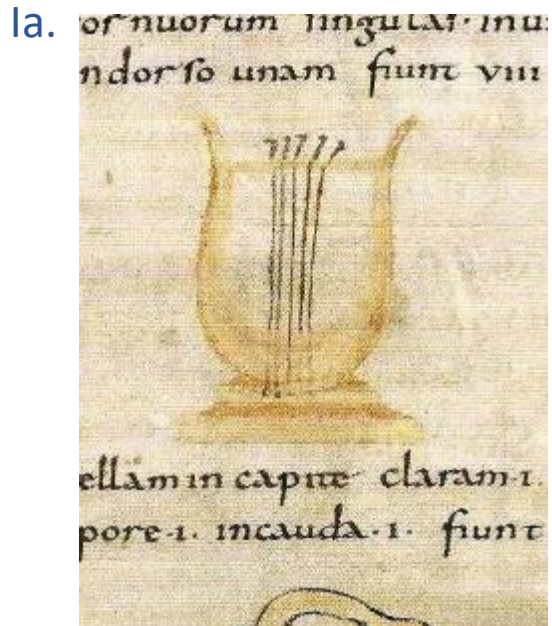 Ia.
or nuorum singulas· inu
ndorso unam fiunt viii
ellam in capite claram·i·
pore·i· incauda·i· fiunt